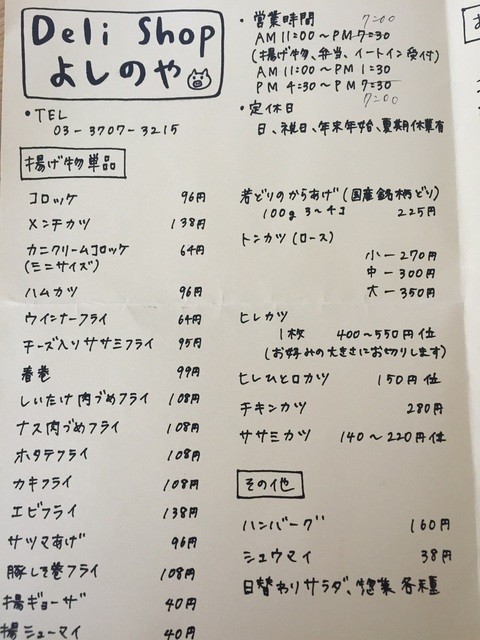 Deli Shop
よしのや
・TEL
03-3707-3215
・営業時間 7:00
AM11:00～PM7:30
(揚げ物、弁当、イートイン受付)
AM11:00～PM1:30
PM4:30～PM7:30
7:00
・定休日
日、祝日、年末年始、夏期休業有
揚げ物単品
コロッケ 96円
メンチカツ 138円
カニクリームコロッケ 64円
(ミニサイズ)
ハムカツ 96円
ウインナーフライ 64円
チーズ入りササミフライ 95円
春巻 99円
しいたけ肉づめフライ 108円
ナス肉づめフライ 108円
ホタテフライ 108円
カキフライ 108円
エビフライ 138円
サツマあげ 96円
豚しそ巻フライ 108円
揚ギョーザ 40円
揚シューマイ 40円
若どりのからあげ(国産銘柄どり)
100g 3～4コ 225円
トンカツ(ロース)
小－270円
中－300円
大－350円
ヒレカツ
1枚 400～550円位
(お好みの大きさにお切りします)
ヒレひと口カツ 150円位
チキンカツ 280円
ササミカツ 140～220円位
その他
ハンバーグ 160円
シュウマイ 38円
日替わりサラダ、惣菜 各種